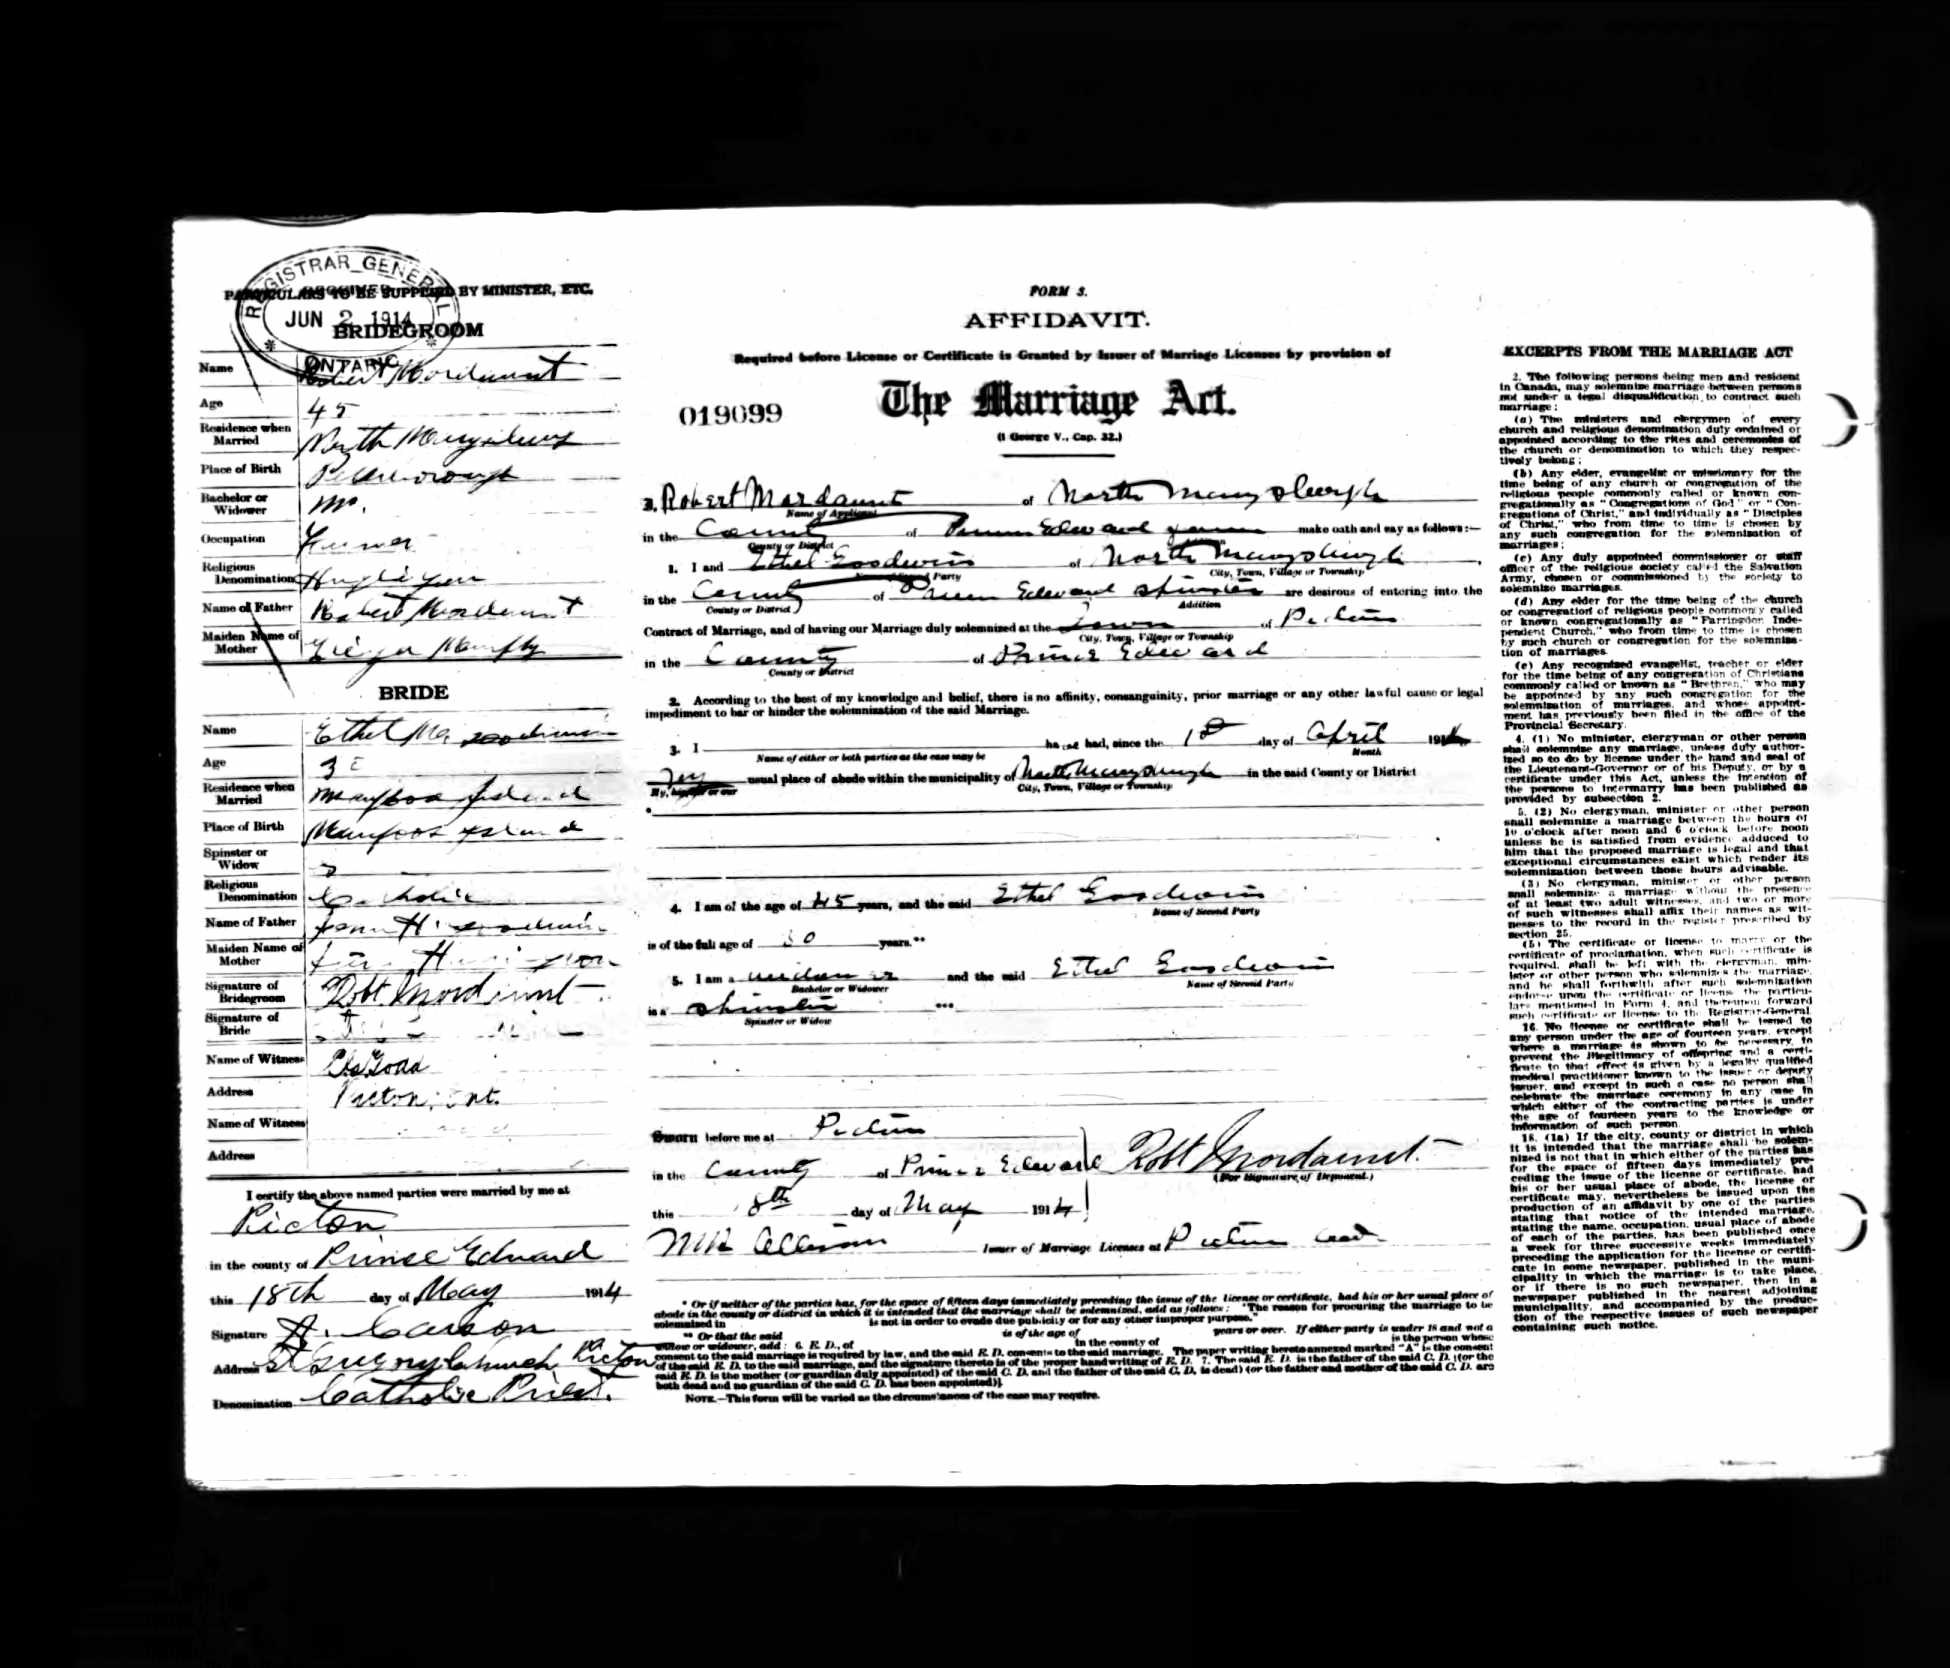 REGISTRAR GENERAL
JUN 2 1914
ONTARIO
PARTICULARS TO BE SUPPLIED BY MINISTER, ETC.
BRIDEGROOM
Name Mordaunt
Age 45
Residence when Married North Marysburg
Place of Birth Peterborough
Bachelor or Widower
Occupation Farmer
Religious Denomination
Name of Father Robert Mordaunt
Maiden Name of Mother
BRIDE
Name Ethel Goodwin
Age
Residence when Married Island
Place of Birth Island
Spinster or Widow
Religious Denomination Catholic
Name of Father John H. Goodwin
Maiden Name of Mother
Signature of Bridegroom Robt Mordaunt
Signature of Bride
Name of Witness
Address Picton, Ont.
Name of Witness
Address
I certify the above named parties were married by me at
Picton
in the county of Prince Edward
this 18th day of May 1914
Signature
Address St Gregory Church Picton
Denomination Catholic Priest.
FORM 3.
AFFIDAVIT.
Required before License or Certificate is Granted by Issuer of Marriage Licenses by provision of
019099 The Marriage Act.
(1 George V., Cap. 32.)
I, Robert Mordaunt of North Marysburgh
Name of Applicant
in the County of Prince Edward make oath and say as follows:—
County or District
1. I and Ethel Goodwin of North Marysburgh
City, Town, Village or Township
in the County of Prince Edward spinster are desirous of entering into the
County or District Addition
Contract of Marriage, and of having our Marriage duly solemnized at the Town of Picton
City, Town, Village or Township
in the County of Prince Edward
County or District
2. According to the best of my knowledge and belief, there is no affinity, consanguinity, prior marriage or any other lawful cause or legal
impediment to bar or hinder the solemnization of the said Marriage.
3. I have had, since the 1st day of April 1914
Name of either or both parties as the case may be Month
my usual place of abode within the municipality of North Marysburgh in the said County or District
My, his, her or our City, Town, Village or Township
4. I am of the age of 45 years, and the said Ethel Goodwin
Name of Second Party
is of the full age of 30 years.**
5. I am a widower and the said Ethel Goodwin
Bachelor or Widower Name of Second Party
is a spinster ***
Spinster or Widow
Sworn before me at Picton
in the County of Prince Edward Robt Mordaunt.
(For Signature of Deponent.)
this day of May 1914
Issuer of Marriage Licenses at Picton
* Or if neither of the parties has, for the space of fifteen days immediately preceding the issue of the license or certificate, had his or her usual place of
abode in the county or district in which it is intended that the marriage shall be solemnized, add as follows: "The reason for procuring the marriage to be
solemnized in is not in order to evade due publicity or for any other improper purpose."
** Or that the said is of the age of years or over. If either party is under 18 and not a
widow or widower, add: 6. E. D., of in the county of is the person whose
consent to the said marriage is required by law, and the said E. D. consents to the said marriage. The paper writing hereto annexed marked "A" is the consent
of the said E. D. to the said marriage, and the signature thereto is of the proper handwriting of E. D. 7. The said E. D. is the father of the said C. D. (for the
said E. D. is the mother (or guardian duly appointed) of the said C. D. and the father of the said C. D. is dead) (or the father and mother of the said C. D. are
both dead and no guardian of the said C. D. has been appointed)].
NOTE.—This form will be varied as the circumstances of the case may require.
EXCERPTS FROM THE MARRIAGE ACT
2. The following persons being men and resident
in Canada, may solemnize marriage between persons
not under a legal disqualification to contract such
marriage:
(a) The ministers and clergymen of every
church and religious denomination duly ordained or
appointed according to the rites and ceremonies of
the church or denomination to which they respec-
tively belong;
(b) Any elder, evangelist or missionary for the
time being of any church or congregation of the
religious people commonly called or known con-
gregationally as "Congregations of God" or "Con-
gregations of Christ," and individually as "Disciples
of Christ," who from time to time is chosen by
any such congregation for the solemnization of
marriages;
(c) Any duly appointed commissioner or staff
officer of the religious society called the Salvation
Army, chosen or commissioned by the society to
solemnize marriages.
(d) Any elder for the time being of the church
or congregation of religious people commonly called
or known congregationally as "Farringdon Inde-
pendent Church," who from time to time is chosen
by such church or congregation for the solemniza-
tion of marriages.
(e) Any recognized evangelist, teacher or elder
for the time being of any congregation of Christians
commonly called or known as "Brethren," who may
be appointed by any such congregation for the
solemnization of marriages, and whose appoint-
ment has previously been filed in the office of the
Provincial Secretary.
4. (1) No minister, clergyman or other person
shall solemnize any marriage, unless duly author-
ized so to do by license under the hand and seal of
the Lieutenant-Governor or of his Deputy, or by a
certificate under this Act, unless the intention of
the persons to intermarry has been published as
provided by subsection 2.
5. (2) No clergyman, minister or other person
shall solemnize a marriage between the hours of
10 o'clock after noon and 6 o'clock before noon
unless he is satisfied from evidence adduced to
him that the proposed marriage is legal and that
exceptional circumstances exist which render its
solemnization between those hours advisable.
(3) No clergyman, minister or other person
shall solemnize a marriage without the presence
of at least two adult witnesses, and two or more
of such witnesses shall affix their names as wit-
nesses to the record in the register prescribed by
section 25.
(5) The certificate or license to marry or the
certificate of proclamation, when such certificate is
required, shall be left with the clergyman, min-
ister or other person who solemnizes the marriage,
and he shall forthwith after such solemnization
endorse upon the certificate or license the particu-
lars mentioned in Form 4, and thereupon forward
such certificate or license to the Registrar-General.
16. No license or certificate shall be issued to
any person under the age of fourteen years, except
where a marriage is shown to be necessary, to
prevent the illegitimacy of offspring and a certi-
ficate to that effect is given by a legally qualified
medical practitioner known to the issuer or deputy
issuer, and except in such a case no person shall
celebrate the marriage ceremony in any case in
which either of the contracting parties is under
the age of fourteen years to the knowledge or
information of such person.
18. (1a) If the city, county or district in which
it is intended that the marriage shall be solem-
nized is not that in which either of the parties has
for the space of fifteen days immediately pre-
ceding the issue of the license or certificate, had
his or her usual place of abode, the license or
certificate may, nevertheless be issued upon the
production of an affidavit by one of the parties
stating that notice of the intended marriage,
stating the name, occupation, usual place of abode
of each of the parties, has been published once
a week for three successive weeks immediately
preceding the application for the license or certifi-
cate in some newspaper, published in the muni-
cipality in which the marriage is to take place,
or if there is no such newspaper, then in a
newspaper published in the nearest adjoining
municipality, and accompanied by the produc-
tion of the respective issues of such newspaper
containing such notice.